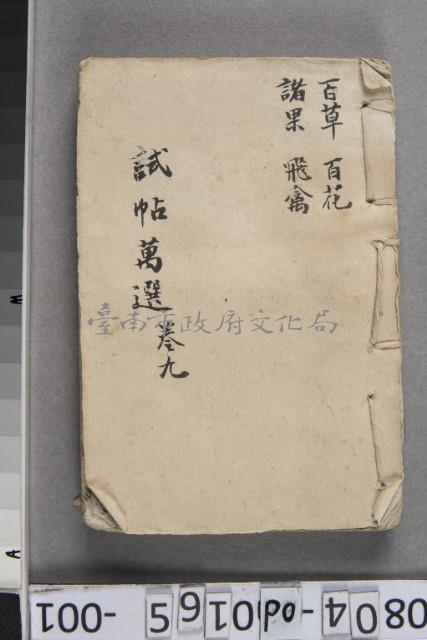 百草 百花
諸果 飛禽
試帖萬選卷九
臺南市政府文化局
0804-od00165 -001
A
A